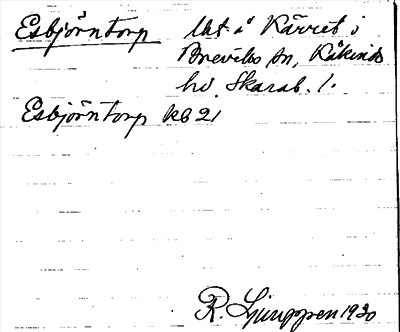 Esbjörntorp Uts å Kärret i
Breviks sn, Kåkinds
hd. Skarab. l.
Esbjörntorp kb 21
R. Ljunggren 1930